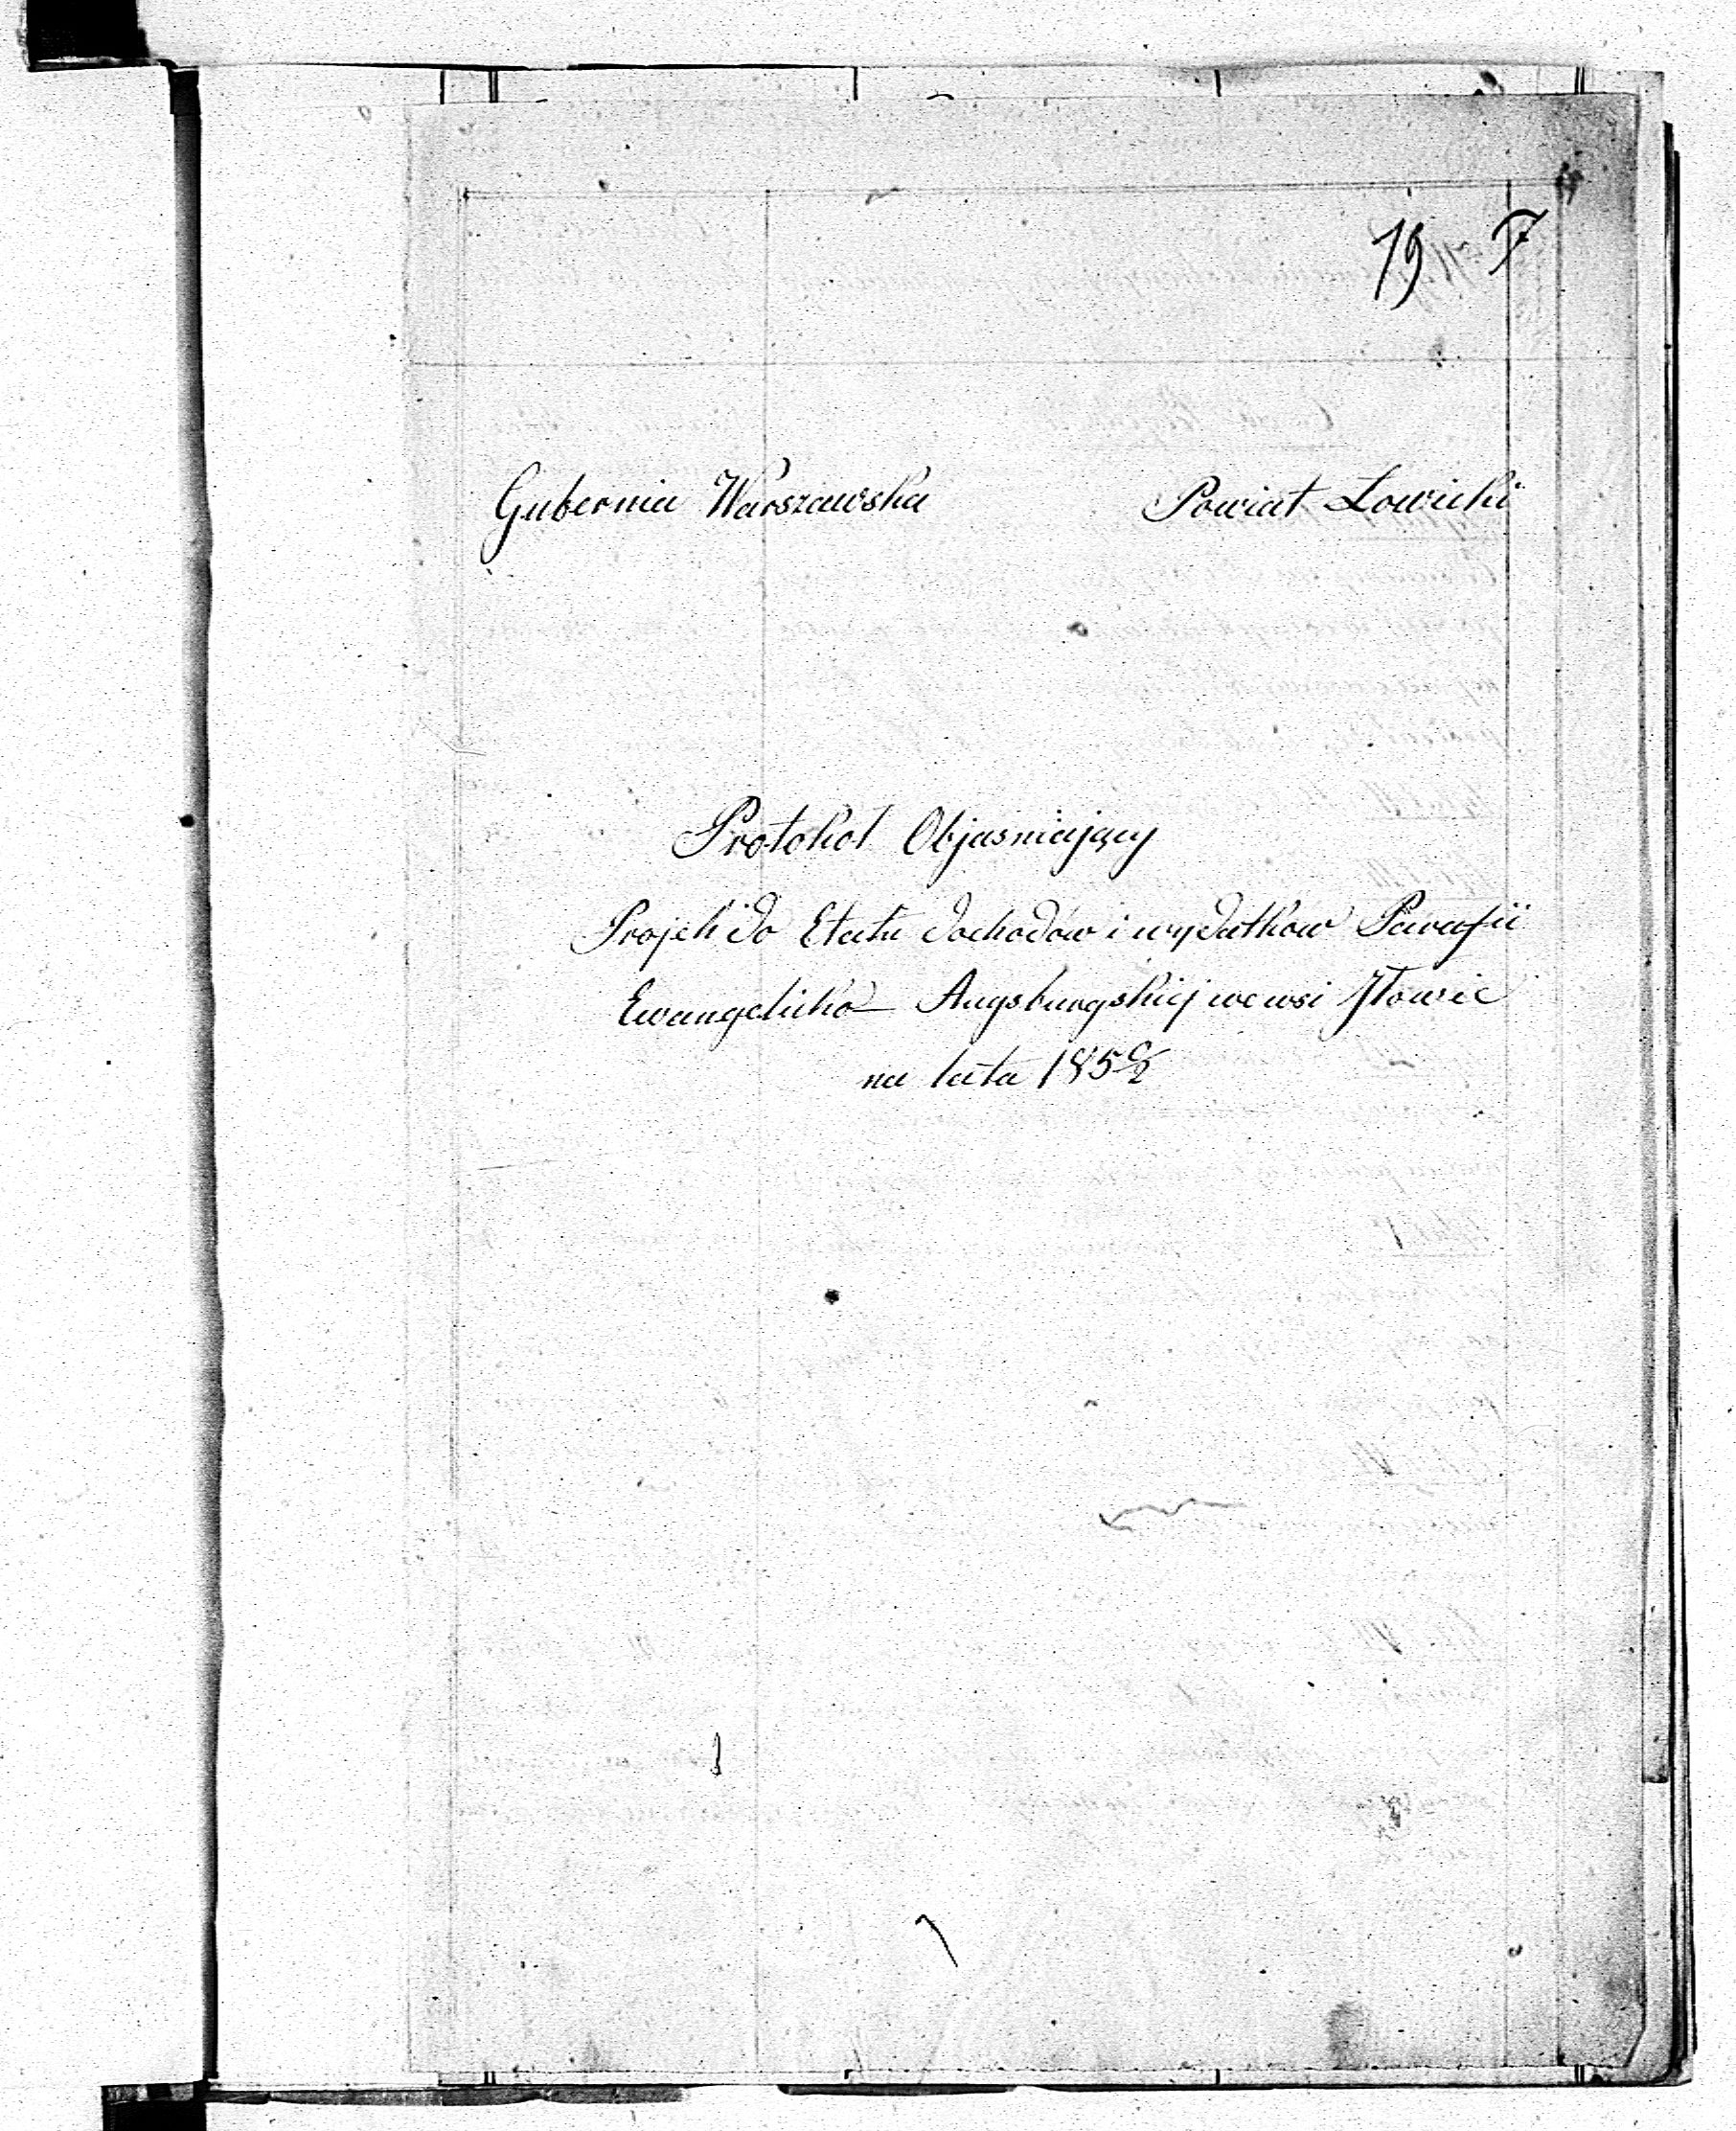 19
Gubernia Warszawska Powiat Łowicki
Protokół Objasniający
Projekt do Etatu dochodów i wydatkow Parafii
Ewangelicko Augsburgskiej we wsi Iłowie
na lata 185